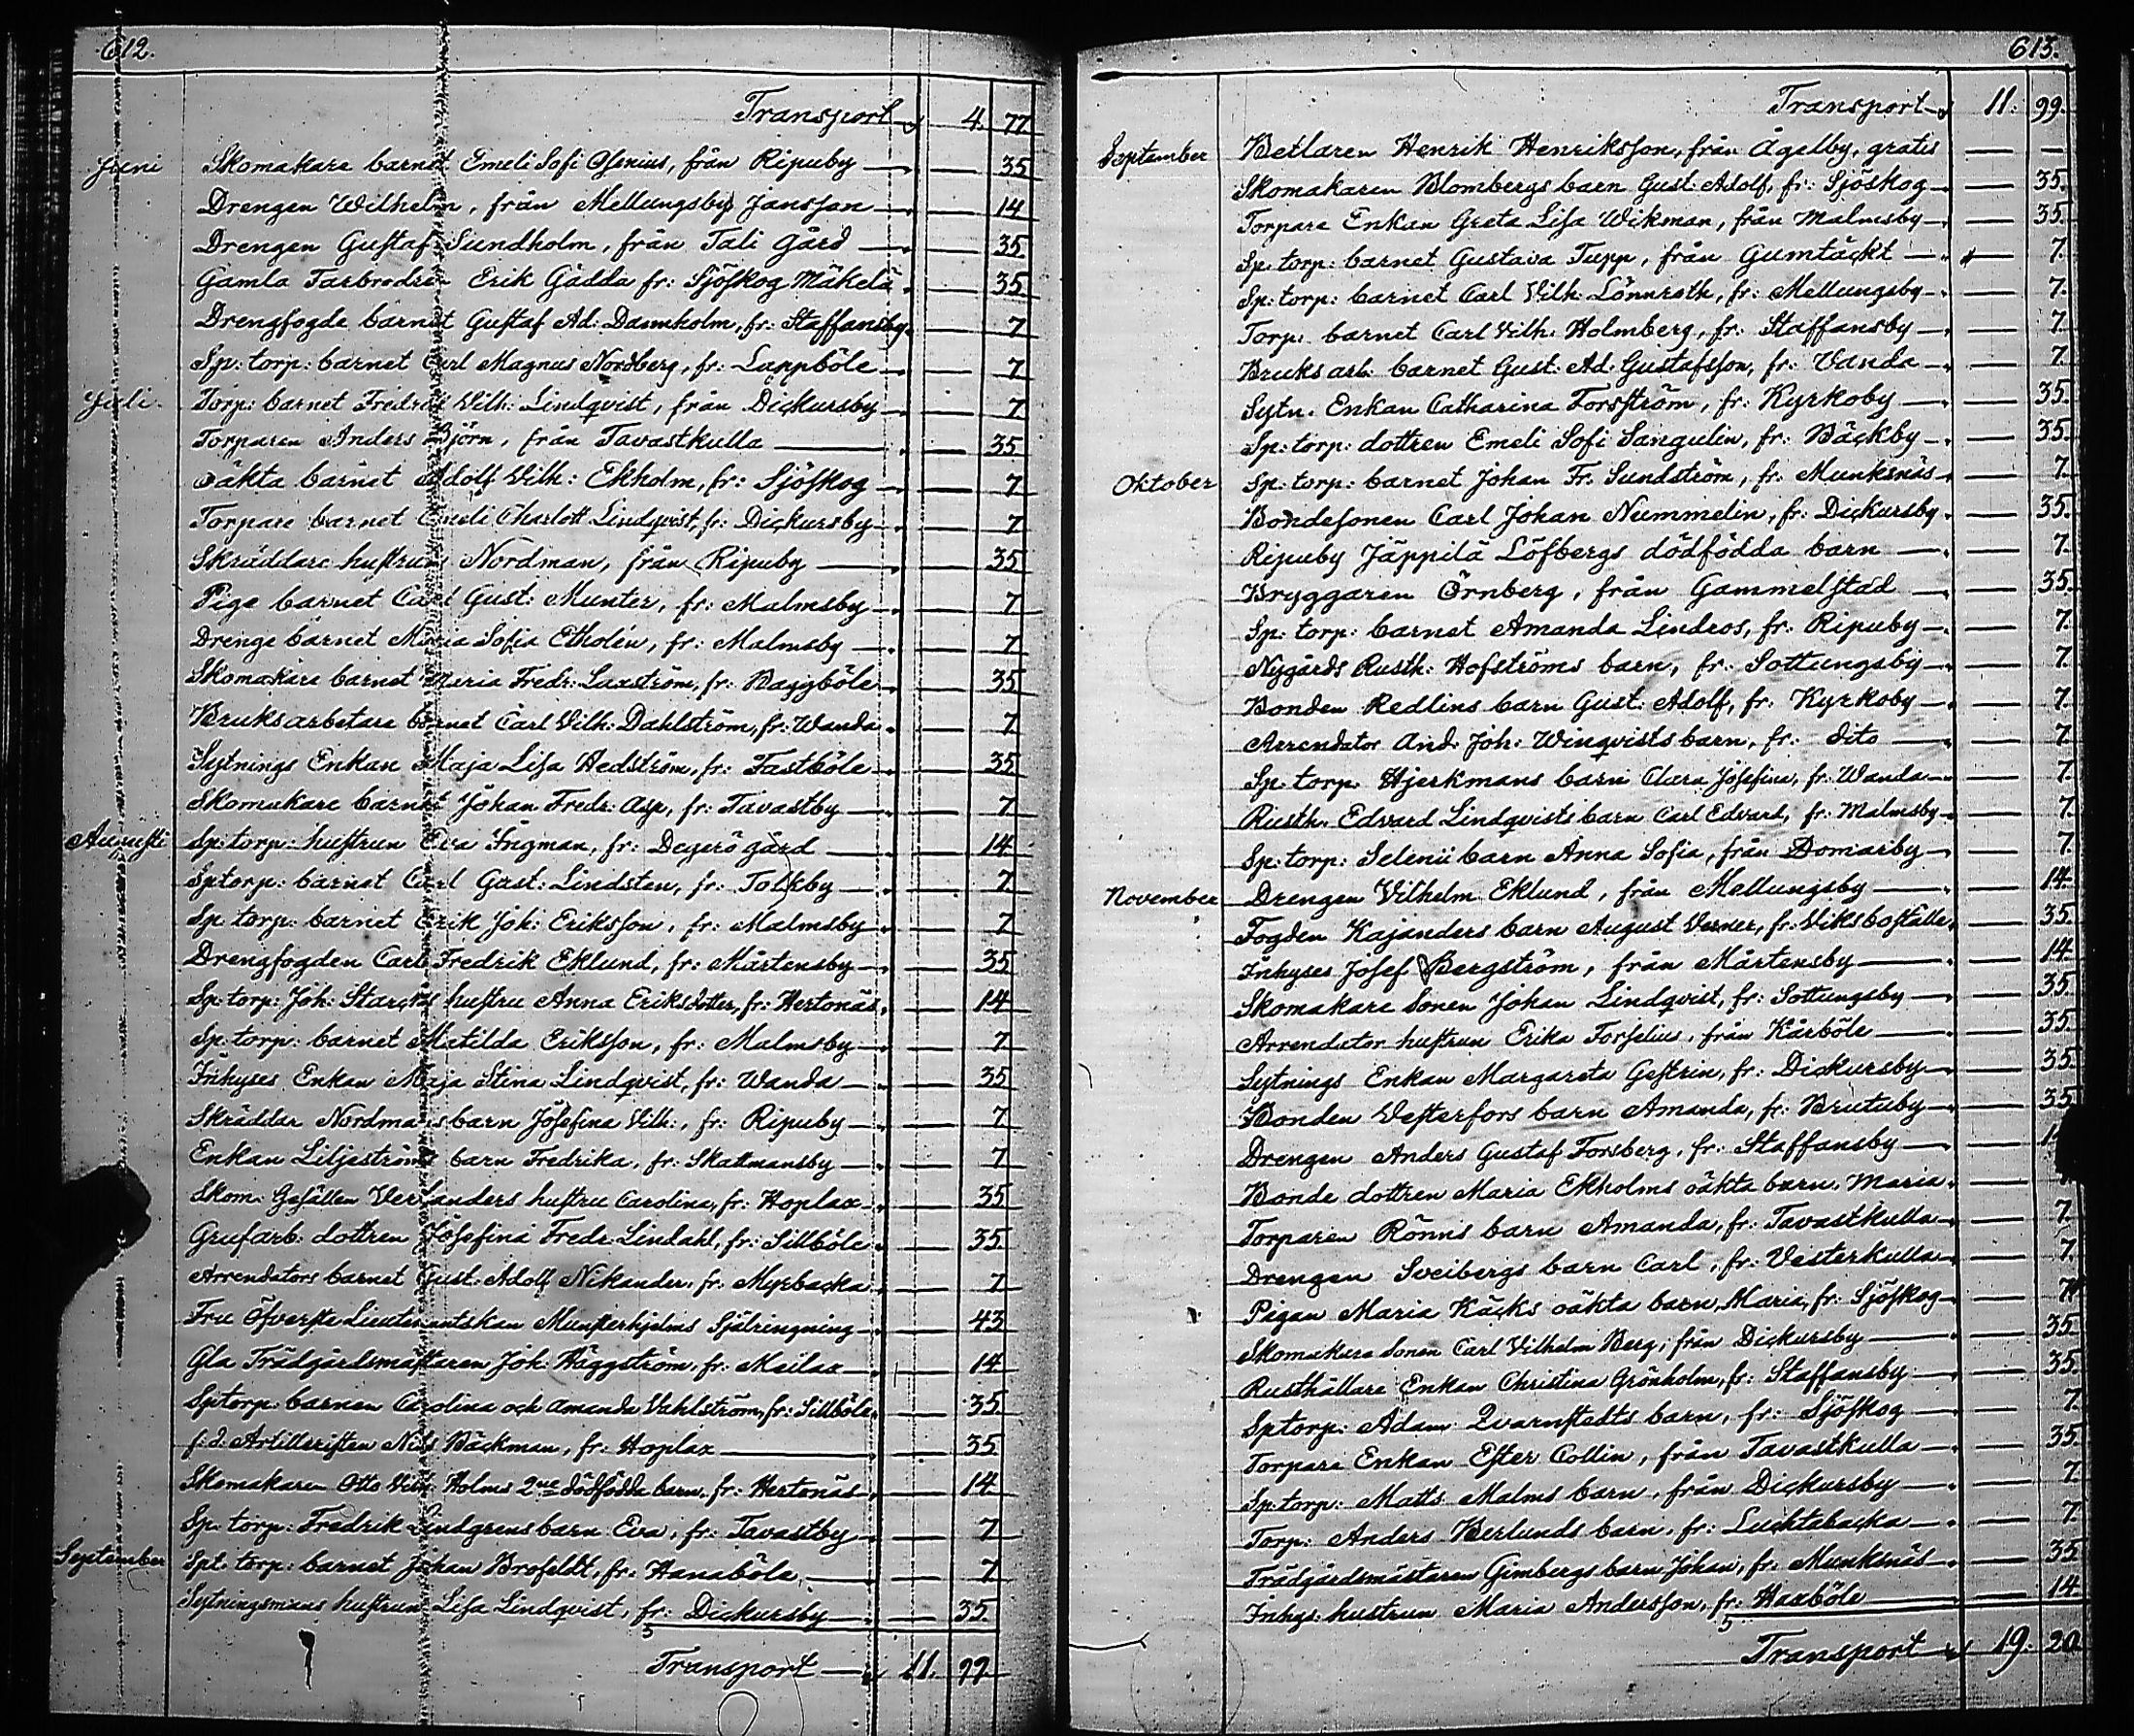 612.
Transport 4. 77
Juni Skomakare barnet Emeli Sofi Glenius, från Ripuby — 35
Drengen Wilhelm, från Mellungsby Jansson — 14
Drengen Gustaf Sundholm, från Tali gård — 35
Gamla Farbrodren Erik Gädda fr: Sjöskog Mäkelä — 35
Drengfogde barnet Gustaf Ad: Dammholm, fr: Staffansby — 7
Sp: torp: barnet Carl Magnus Nordberg, fr: Lappböle — 7
Juli. Torp: barnet Fredrik Vilh: Lindqvist, från Dickursby — 7
Torparen Anders Björn, från Tavastkulla — 35
oäkta barnet Adolf Vilh: Ekholm, fr: Sjöskog — 7
Torpare barnet Emeli Charlott Lindqvist, fr: Dickursby — 7
Skräddare hustrun Nordman, från Ripuby — 35
Pige barnet Carl Gust: Munter, fr: Malmsby — 7
Drenge barnet Maria Sofia Etholén, fr: Malmsby — 7
Skomakare barnet Maria Fredr: Laxström, fr: Baggböle — 35
Bruksarbetare barnet Carl Vilh: Dahlström, fr: Wanda — 7
Sytnings Enkan Maja Lisa Hedström, fr: Fastböle — 35
Skomakare barnet Johan Fredr: Asp, fr: Tavastby — 7
Augusti Sp: torp: hustrun Eva Ingman, fr: Degerö gård — 14
Sptorp: barnet Carl Gust: Lindsten, fr: Tolkby — 7
Sp: torp: barnet Erik Joh: Eriksson, fr: Malmsby — 7
Drengfogden Carl Fredrik Eklund, fr: Mårtensby — 35
Sp: torp: Joh: Starcks hustru Anna Eriksdotter, fr: Hertonäs — 14
Sp: torp: barnet Matilda Eriksson, fr: Malmsby — 7
Inhyses Enkan Maja Stina Lindqvist, fr: Wanda — 35
Skräddar Nordmans barn Josefina Vilh:, fr: Ripuby — 7
Enkan Liljeströms barn Fredrika, fr: Skattmansby — 7
Skom: Gesällen Verlanders hustru Carolina, fr: Hoplax — 35
Grufarb: dottren Josefina Fredr: Lindahl, fr: Sillböle — 35
Arrendators barnet Gust: Adolf Nikander, fr: Myrbacka — 7
Fru Öfverste Lieutenantskan Munsterhjelms Själringning — 43
Gla Trädgårdsmästaren Joh: Häggström, fr: Meilax — 14
Sptorp: barnen Carolina och Amanda Vahlström, fr: Sillböle — 35
f: d: Artilleristen Nils Bäckman, fr: Hoplax — 35
Skomakaren Otto Vilh: Holms 2ne dödfödda barn, fr: Hertonäs — 14
Sp: torp: Fredrik Lindgrens barn Eva, fr: Tavastby — 7
September Spt: torp: barnet Johan Brofeldt, fr: Hanaböle — 7
Sytningsmans hustrun Lisa Lindqvist, fr: Dickursby — 35
Transport — 11. 99
613.
Transport 11. 99
September Betlaren Henrik Henriksson, från Ågelby, gratis — —
Skomakaren Blombergs barn Gust: Adolf, fr: Sjöskog — 35.
Torpare Enkan Greta Lisa Wikman, från Malmsby — 35.
Sp: torp: barnet Gustava Tupp, från Gumtäckt — 7.
Sp: torp: barnet Carl Vilh: Lönnroth, fr: Mellungsby — 7.
Torp: barnet Carl Vilh: Holmberg, fr: Staffansby — 7.
Bruks arb: barnet Gust: Ad: Gustafsson, fr: Vanda — 7.
Sytn: Enkan Catharina Forsström, fr: Kyrkoby — 35.
Sp: torp: dottren Emeli Sofi Sangulin, fr: Bäckby — 35.
Oktober Sp: torp: barnet Johan Fr. Sundström, fr: Munksnäs — 7.
Bondesonen Carl Johan Nummelin, fr: Dickursby — 35.
Ripuby Jäppilä Löfbergs dödfödda barn — 7.
Bryggaren Örnberg, från Gammelstad — 35.
Sp: torp: barnet Amanda Lindros, fr: Ripuby — 7.
Nygårds Rusth: Hofströms barn, fr: Sottungsby — 7.
Bonden Redlins barn Gust: Adolf, fr: Kyrkoby — 7.
Arrendator And: Joh: Winqvists barn, fr: dito — 7
Sp: torp: Hjerkmans barn Clara Josefina, fr: Wanda — 7.
Rusth: Edvard Lindqvists barn Carl Edvard, fr: Malmsby — 7.
Sp: torp: Selenii barn Anna Sofia, från Domarby — 7.
November Drengen Vilhelm Eklund, från Mellungsby — 14.
Fogden Kajanders barn August Verner, fr: Viks boställe — 35.
Inhyses Josef Bergström, från Mårtensby — 14.
Skomakare Sonen Johan Lindqvist, fr: Sottungsby — 35.
Arrendator hustrun Erika Forselius, från Kårböle — 35.
Sytnings Enkan Margareta Gestrin, fr: Dickursby — 35.
Bonden Vesterfors barn Amanda, fr: Brutuby — 35
Drengen Anders Gustaf Forsberg, fr: Staffansby —
Bonde dottren Maria Ekholms oäkta barn, Maria —
Torparen Rönns barn Amanda, fr: Tavastkulla — 7.
Drengen Sveibergs barn Carl, fr: Vesterkulla — 7.
Pigan Maria Käcks oäkta barn Maria, fr: Sjöskog — 7
Skomakare Sonen Carl Vilhelm Berg, från Dickursby — 35.
Rusthållare Enkan Christina Grönholm, fr: Staffansby — 35.
Sptorp: Adam Qvarnstedts barn, fr: Sjöskog — 7.
Torpare Enkan Ester Collin, från Tavastkulla — 35.
Sp: torp: Matts Malms barn, från Dickursby — 7.
Torp: Anders Berlunds barn, fr: Lucktabacka — 7.
Trädgårdsmästaren Gimbergs barn Johan, fr: Munksnäs — 35
Inhys: hustrun Maria Andersson, fr: Haxböle — 14
Transport 19. 20